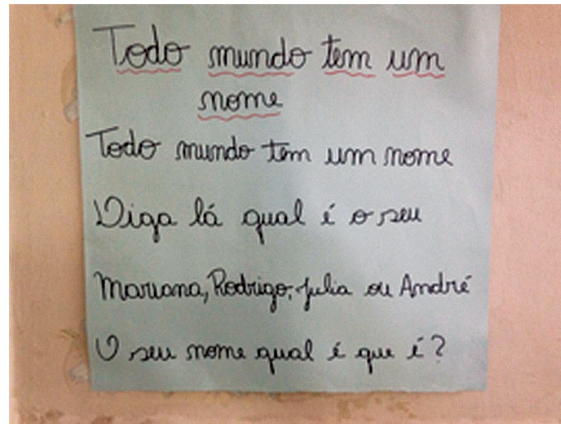 Todo mundo tem um
nome
Todo mundo tem um nome
Diga lá qual é o seu
Mariana, Rodrigo, Julia ou André
O seu nome qual é que é?